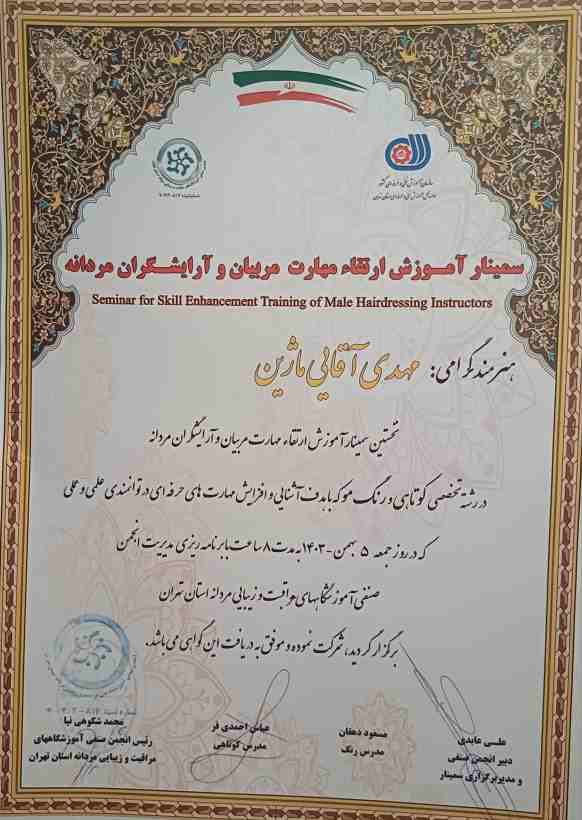 سازمان آموزش فنی و حرفه‌ای کشور
سمینار آمـوزش ارتقاء مهارت مربیان و آرایشـگران مردانه
Seminar for Skill Enhancement Training of Male Hairdressing Instructors
هنرمند گرامی: مهدی آقایی ماژین
نخستین سمینار آموزش ارتقاء مهارت مربیان و آرایشگران مردانه
در رشته تخصصی کوتاهی و رنگ مو که با هدف آشنایی و افزایش مهارت های حرفه ای در توانمندی علمی و عملی
که در روز جمعه ۵ بهمن -۱۴۰۳ به مدت ۸ ساعت با برنامه ریزی مدیریت انجمن
صنفی آموزشگاههای مراقبت و زیبایی مردانه استان تهران
برگزار گردید، شرکت نموده و موفق به دریافت این گواهی می باشد.
عیسی عابدی
دبیر انجمن صنفی
و مدیر برگزاری سمینار
مسعود دهقان
مدرس رنگ
عباس احمدی فر
مدرس کوتاهی
محمد شکوهی نیا
رئیس انجمن صنفی آموزشگاههای
مراقبت و زیبایی مردانه استان تهران